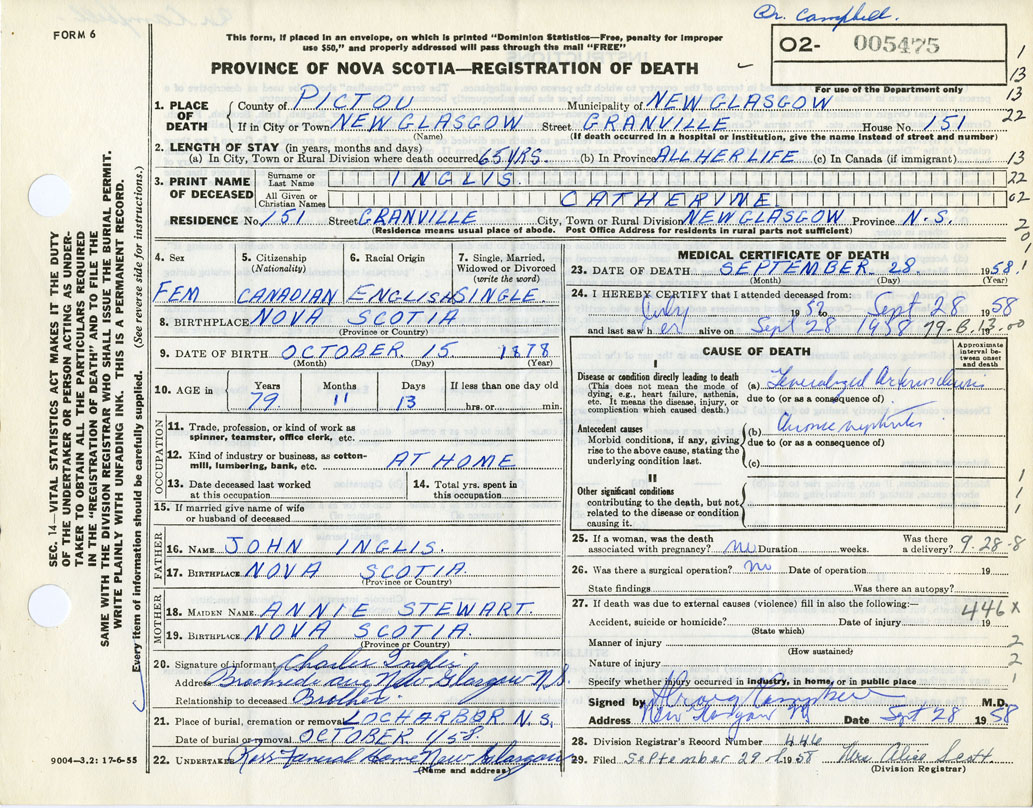 Dr. Campbell.
FORM 6
This form, if placed in an envelope, on which is printed "Dominion Statistics—Free, penalty for improper
use $50," and properly addressed will pass through the mail "FREE"
O2- 005475
For use of the Department only
PROVINCE OF NOVA SCOTIA—REGISTRATION OF DEATH
1. PLACE OF DEATH
County of PICTOU Municipality of NEW GLASGOW
If in City or Town NEW GLASGOW Street GRANVILLE House No. 151
(Name) (If death occurred in a hospital or institution, give the name instead of street and number)
2. LENGTH OF STAY (in years, months and days)
(a) In City, Town or Rural Division where death occurred 65 YRS. (b) In Province ALL HER LIFE (c) In Canada (if immigrant)
3. PRINT NAME OF DECEASED
Surname or Last Name INGLIS.
All Given or Christian Names CATHERINE.
RESIDENCE No. 151 Street GRANVILLE City, Town or Rural Division NEW GLASGOW Province N.S.
(Residence means usual place of abode. Post Office Address for residents in rural parts not sufficient)
1
13
13
22
13
22
02
2
0
1
SEC. 14—VITAL STATISTICS ACT MAKES IT THE DUTY
OF THE UNDERTAKER OR PERSON ACTING AS UNDER-
TAKER TO OBTAIN ALL THE PARTICULARS REQUIRED
IN THE "REGISTRATION OF DEATH" AND TO FILE THE
SAME WITH THE DIVISION REGISTRAR WHO SHALL ISSUE THE BURIAL PERMIT.
WRITE PLAINLY WITH UNFADING INK. THIS IS A PERMANENT RECORD.
Every item of information should be carefully supplied. (See reverse side for instructions.)
4. Sex 5. Citizenship 6. Racial Origin 7. Single, Married,
(Nationality) Widowed or Divorced
(write the word)
FEM CANADIAN ENGLISH SINGLE.
8. BIRTHPLACE NOVA SCOTIA
(Province or Country)
9. DATE OF BIRTH OCTOBER. 15. 1878
(Month) (Day) (Year)
10. AGE in Years Months Days If less than one day old
79. 11 13 hrs. or min.
OCCUPATION
11. Trade, profession, or kind of work as
spinner, teamster, office clerk, etc.
12. Kind of industry or business, as cotton-
mill, lumbering, bank, etc. AT HOME
13. Date deceased last worked
at this occupation
14. Total yrs. spent in
this occupation
15. If married give name of wife
or husband of deceased
FATHER
16. NAME JOHN INGLIS.
17. BIRTHPLACE NOVA SCOTIA.
(Province or Country)
MOTHER
18. MAIDEN NAME ANNIE STEWART
19. BIRTHPLACE NOVA SCOTIA.
(Province or Country)
20. Signature of informant Charles Inglis
Address Brookside ave New Glasgow N.S.
Relationship to deceased Brother
21. Place of burial, cremation or removal LOCHARBOR N.S.
Date of burial or removal OCTOBER. 1/58.
22. UNDERTAKER Ross Funeral Home New Glasgow
(Name and address)
9004—3.2: 17-6-55
MEDICAL CERTIFICATE OF DEATH
23. DATE OF DEATH SEPTEMBER. 28. 1958.
(Month) (Day) (Year)
24. I HEREBY CERTIFY that I attended deceased from:
July 19 to Sept 28 1958
and last saw her alive on Sept 28 1958 79.B.13.00
CAUSE OF DEATH
Approximate
interval be-
tween onset
and death
I
Disease or condition directly leading to death
(This does not mean the mode of
dying, e.g., heart failure, asthenia,
etc. It means the disease, injury, or
complication which caused death.)
(a) Generalized Arteriosclerosis
due to (or as a consequence of)
Antecedent causes
Morbid conditions, if any, giving
rise to the above cause, stating the
underlying condition last.
(b) Chronic nephritis
due to (or as a consequence of)
(c)
II
Other significant conditions
contributing to the death, but not
related to the disease or condition
causing it.
1
1
1
25. If a woman, was the death
associated with pregnancy? no Duration weeks. Was there
a delivery? 9-28-8
26. Was there a surgical operation? no Date of operation 19
State findings Was there an autopsy?
27. If death was due to external causes (violence) fill in also the following:—
446X
Accident, suicide or homicide? Date of injury 19
(State which)
Manner of injury 2
(How sustained)
Nature of injury 2
Specify whether injury occurred in industry, in home, or in public place 1
Signed by Campbell M.D.
Address New Glasgow NS Date Sept 28 1958
28. Division Registrar's Record Number 446
29. Filed September 29th 1958 Mrs Alice Scott
(Division Registrar)